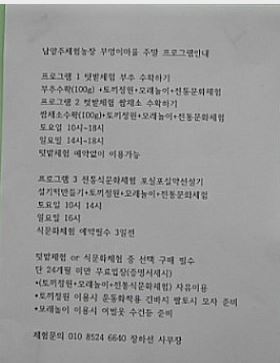 남양주체험농장 부엉이마을 주말 프로그램안내
프로그램 1 텃밭체험 부추 수확하기
부추수확(100g) +토끼정원+모래놀이+전통문화체험
프로그램 2 텃밭체험 쌈채소 수확하기
쌈채소수확(100g)+토끼정원+모래놀이+전통문화체험
토요일 10시~18시
일요일 14시~18시
텃밭체험 예약없이 이용가능
프로그램 3 전통식문화체험 포실포실약선설기
설기떡만들기+토끼정원+모래놀이+전통문화체험
토요일 10시 14시
일요일 16시
식문화체험 예약필수 3일전
텃밭체험 or 식문화체험 중 선택 구매 필수
단 24개월 미만 무료입장(증명서제시)
*(토끼정원+모래놀이+전통문화체험) 자유이용
*토끼정원 이용시 운동화착용 긴바지 팔토시 모자 준비
*모래놀이 이용시 여벌옷 수건등 준비
체험문의 010 8524 6640 장하선 사무장